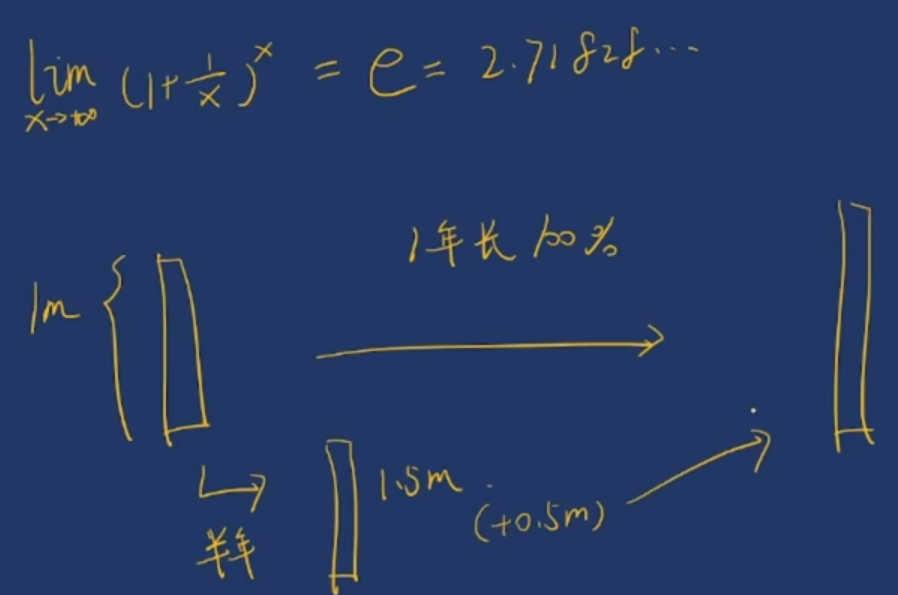 lim (1+1/x)^x = e = 2.71828...
x→+∞
1年长100%
1m
1.5m
(+0.5m)
半年